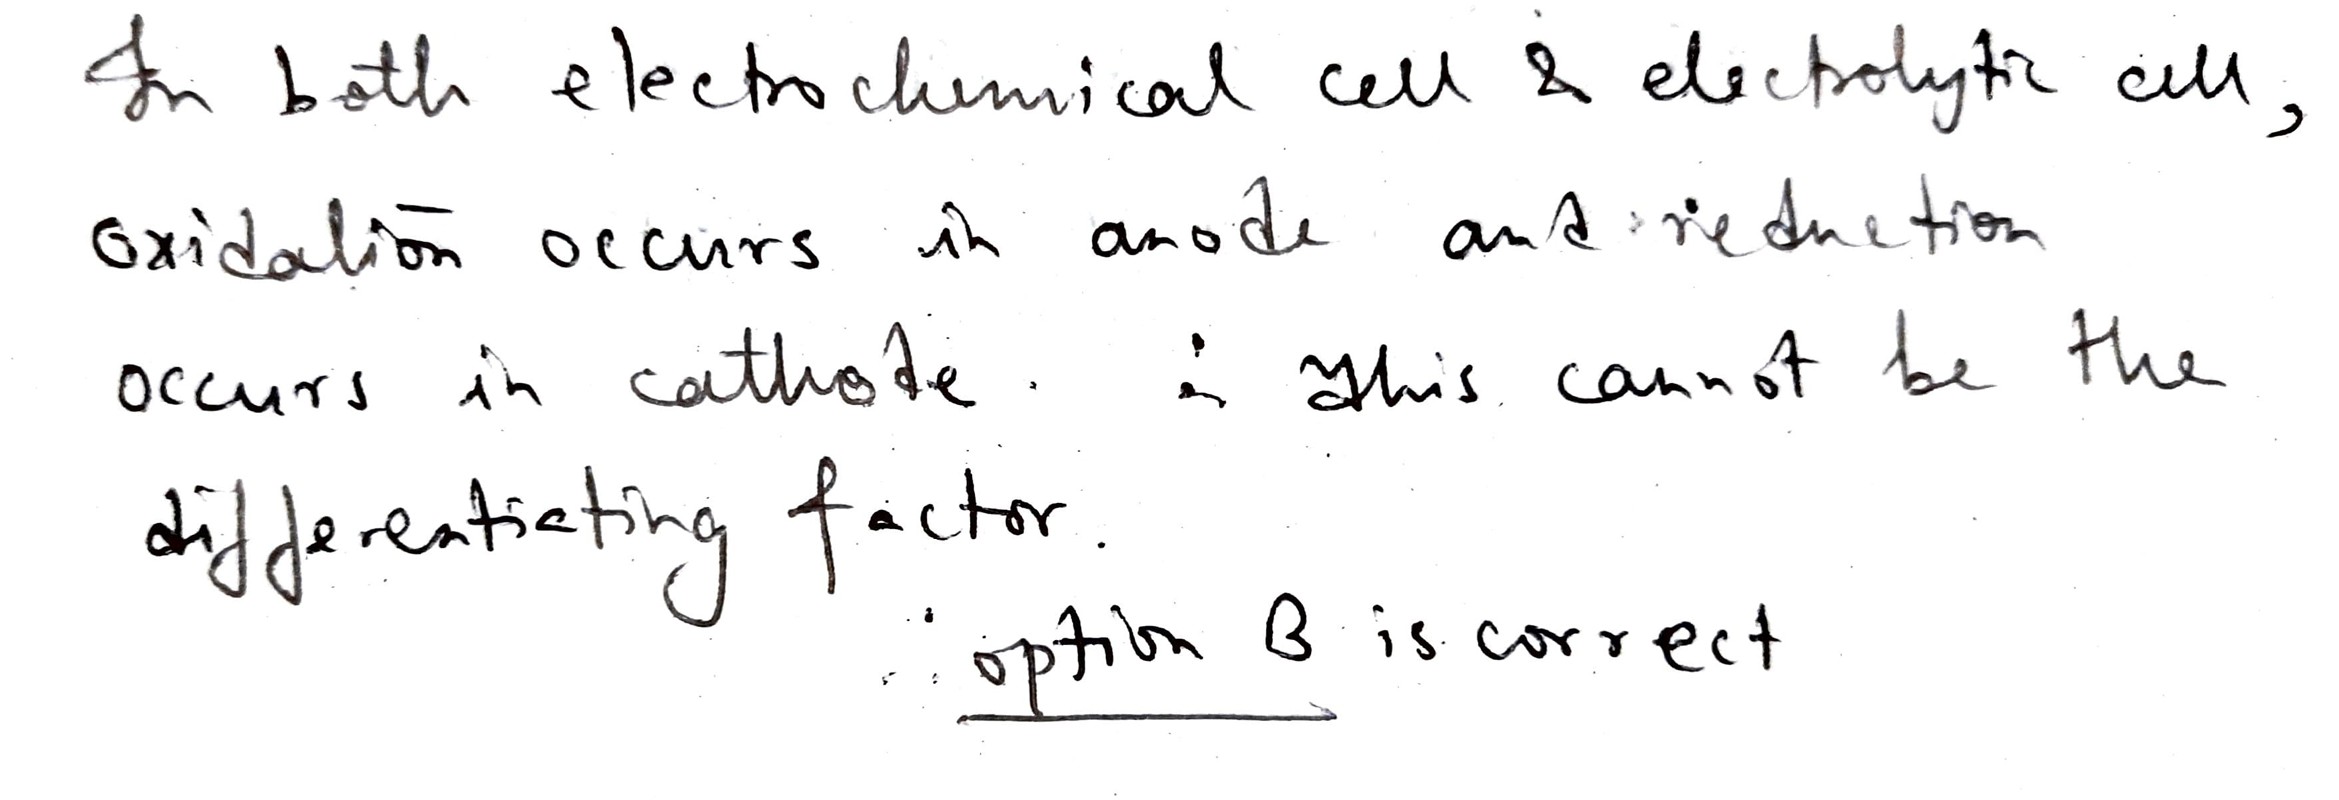 In both electrochemical cell & electrolytic cell,
oxidation occurs in anode and reduction
occurs in cathode. ∴ This cannot be the
differentiating factor.
∴ option B is correct